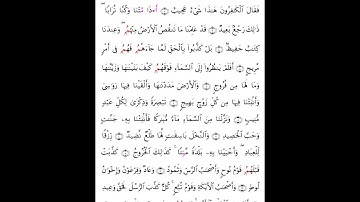 فَقَالَ ٱلْكَٰفِرُونَ هَٰذَا شَىْءٌ عَجِيبٌ ۝ أَءِذَا مِتْنَا وَكُنَّا تُرَابًا ۖ
ذَٰلِكَ رَجْعٌۢ بَعِيدٌ ۝ قَدْ عَلِمْنَا مَا تَنقُصُ ٱلْأَرْضُ مِنْهُمْ ۖ وَعِندَنَا
كِتَٰبٌ حَفِيظٌۢ ۝ بَلْ كَذَّبُوا۟ بِٱلْحَقِّ لَمَّا جَآءَهُمْ فَهُمْ فِىٓ أَمْرٍ
مَّرِيجٍ ۝ أَفَلَمْ يَنظُرُوٓا۟ إِلَى ٱلسَّمَآءِ فَوْقَهُمْ كَيْفَ بَنَيْنَٰهَا وَزَيَّنَّٰهَا
وَمَا لَهَا مِن فُرُوجٍ ۝ وَٱلْأَرْضَ مَدَدْنَٰهَا وَأَلْقَيْنَا فِيهَا رَوَٰسِىَ
وَأَنۢبَتْنَا فِيهَا مِن كُلِّ زَوْجٍۭ بَهِيجٍ ۝ تَبْصِرَةً وَذِكْرَىٰ لِكُلِّ عَبْدٍ
مُّنِيبٍ ۝ وَنَزَّلْنَا مِنَ ٱلسَّمَآءِ مَآءً مُّبَٰرَكًا فَأَنۢبَتْنَا بِهِۦ جَنَّٰتٍ
وَحَبَّ ٱلْحَصِيدِ ۝ وَٱلنَّخْلَ بَاسِقَٰتٍ لَّهَا طَلْعٌ نَّضِيدٌ ۝ رِّزْقًا
لِّلْعِبَادِ ۖ وَأَحْيَيْنَا بِهِۦ بَلْدَةً مَّيْتًا ۚ كَذَٰلِكَ ٱلْخُرُوجُ ۝ كَذَّبَتْ
قَبْلَهُمْ قَوْمُ نُوحٍ وَأَصْحَٰبُ ٱلرَّسِّ وَثَمُودُ ۝ وَعَادٌ وَفِرْعَوْنُ وَإِخْوَٰنُ
لُوطٍ ۝ وَأَصْحَٰبُ ٱلْأَيْكَةِ وَقَوْمُ تُبَّعٍ ۚ كُلٌّ كَذَّبَ ٱلرُّسُلَ فَحَقَّ وَعِيدِ